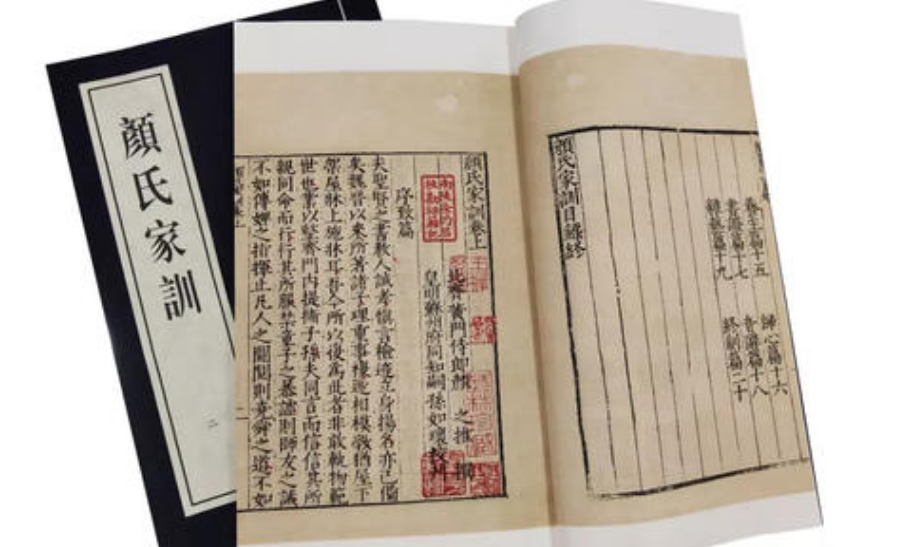 顏氏家訓
二
養生篇十五 歸心篇十六
書證篇十七 音辭篇十八
雜藝篇十九 終制篇二十
顏氏家訓目錄終
顏氏家訓卷上
北齊黃門侍郎顏 之推 撰
皇明蘇州府同知嗣孫如瓌校刊
序致篇
夫聖賢之書教人誠孝慎言檢迹立身揚名亦已備
矣魏晉以來所著諸子理重事複遞相模斆猶屋下
架屋牀上施牀耳吾今所以復為此者非敢軌物範
世也業以整齊門內提撕子孫夫同言而信信其所
親同命而行行其所服禁童子之暴謔則師友之誡
不如傅婢之指揮止凡人之鬪鬩則堯舜之道不如